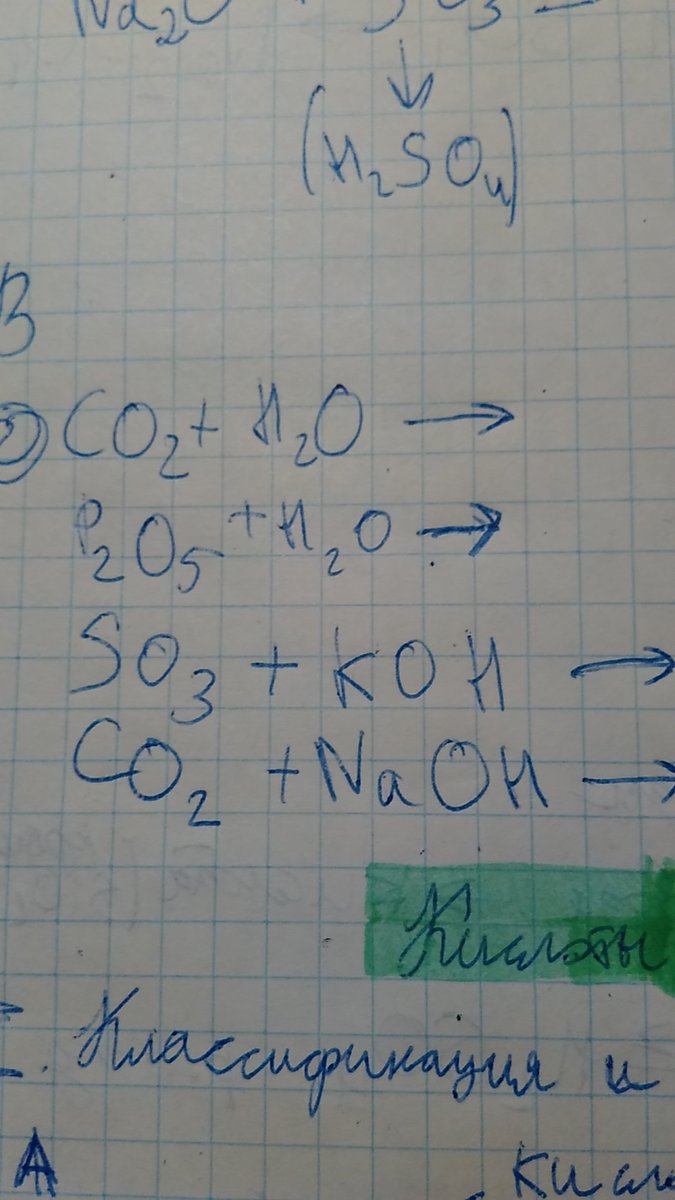 Na₂O + SO₃ =
(H₂SO₄)
B
CO₂ + H₂O →
P₂O₅ + H₂O →
SO₃ + KOH →
CO₂ + NaOH →
Кислоты
I. Классификация и
A